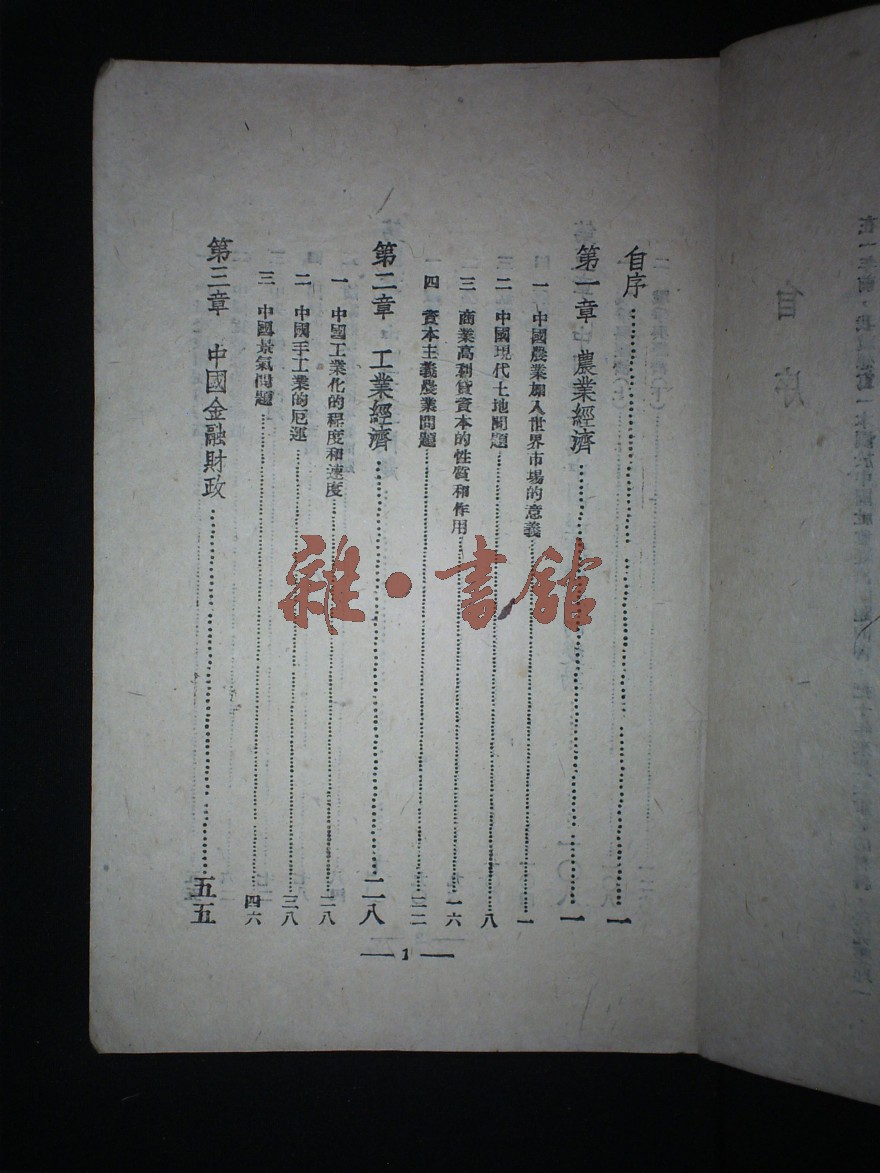 自序……一
第一章 農業經濟……一
一 中國農業加入世界市場的意義……一
二 中國現代土地問題……八
三 商業高利貸資本的性質和作用……一六
四 資本主義農業問題……二二
第二章 工業經濟……二八
一 中國工業化的程度和速度……二八
二 中國手工業的厄運……三八
三 中國景氣問題……四六
第三章 中國金融財政……五五
— 1 —
自序
雜·書館